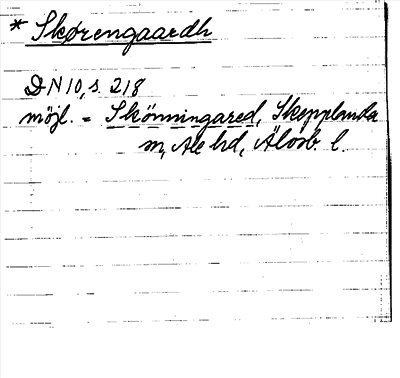 * Skørengaardh
DN 10, s. 218
möjl. = Skönningared, Skepplanda
sn, Ale hd, Älvsb. l.